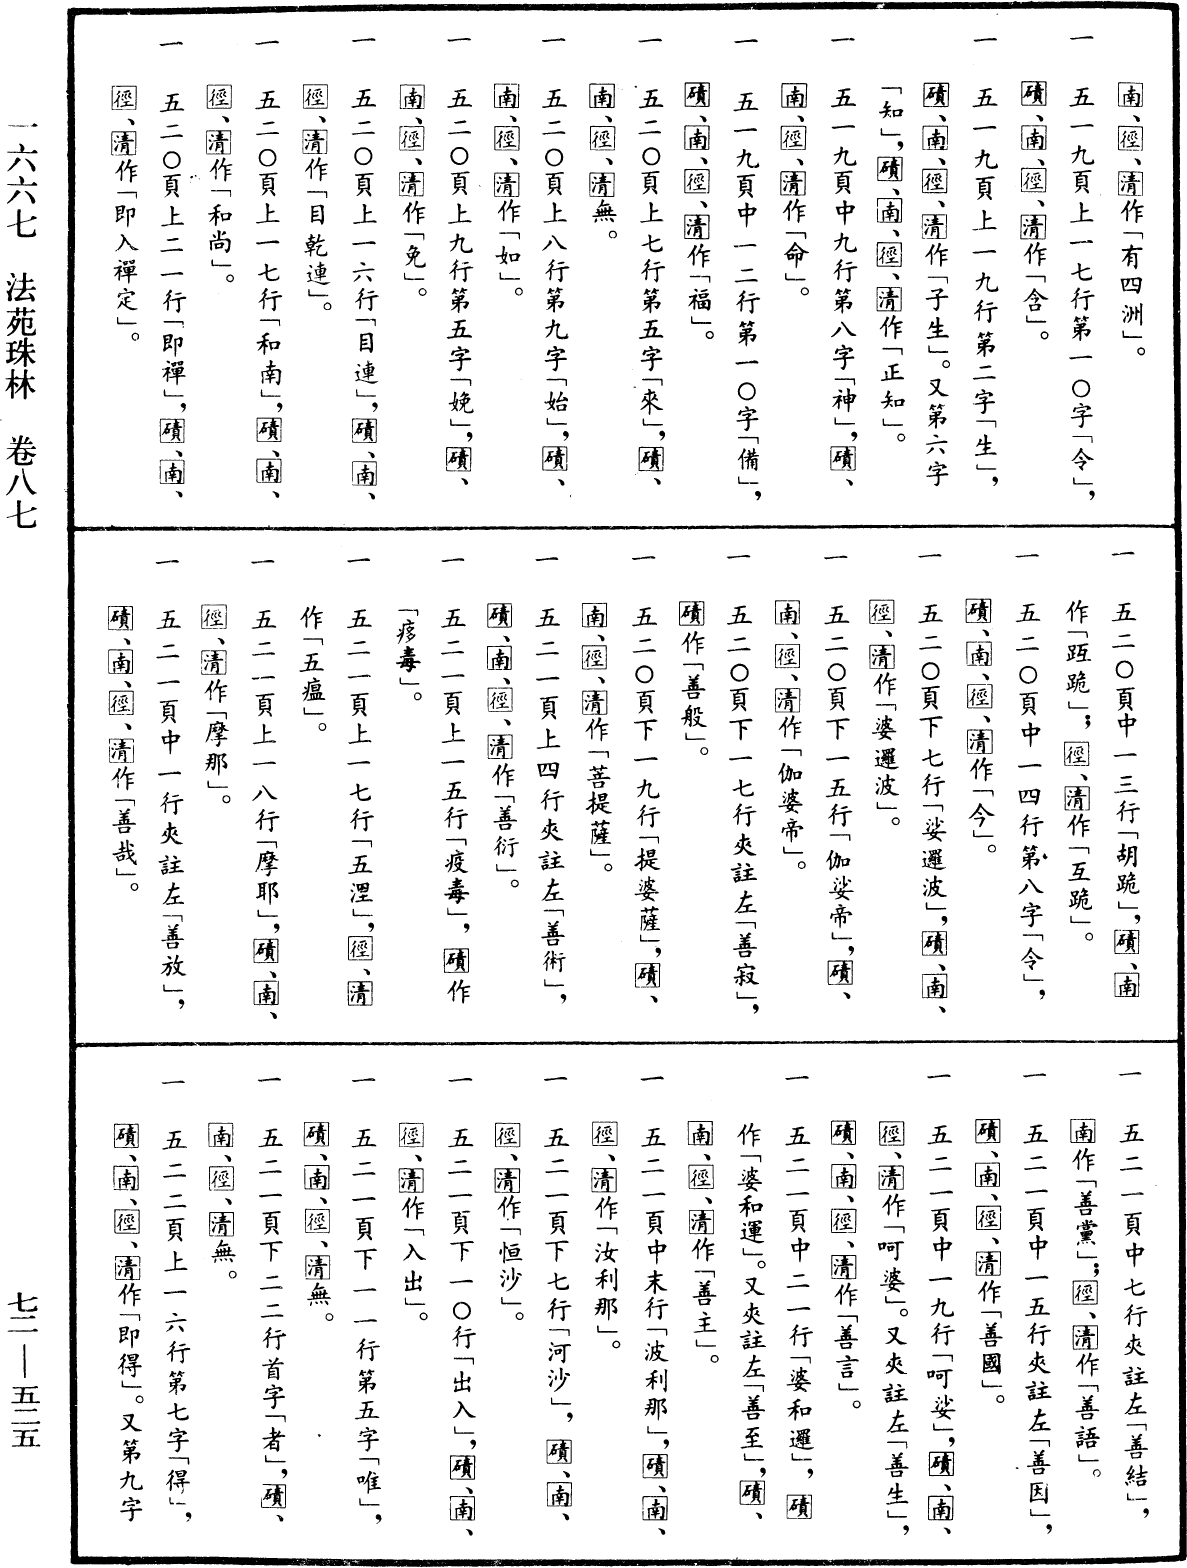 南、徑、清作「有四洲」。
一　五一九頁上一七行第一〇字「令」，
磧、南、徑、清作「含」。
一　五一九頁上一九行第二字「生」，
磧、南、徑、清作「子生」。又第六字
「知」，磧、南、徑、清作「正知」。
一　五一九頁中九行第八字「神」，磧、
南、徑、清作「命」。
一　五一九頁中一二行第一〇字「備」，
磧、南、徑、清作「福」。
一　五二〇頁上七行第五字「來」，磧、
南、徑、清無。
一　五二〇頁上八行第九字「始」，磧、
南、徑、清作「如」。
一　五二〇頁上九行第五字「娩」，磧、
南、徑、清作「免」。
一　五二〇頁上一六行「目連」，磧、南、
徑、清作「目乾連」。
一　五二〇頁上一七行「和南」，磧、南、
徑、清作「和尚」。
一　五二〇頁上二一行「即禪」，磧、南、
徑、清作「即入禪定」。
一　五二〇頁中一三行「胡跪」，磧、南
作「跙跪」；徑、清作「互跪」。
一　五二〇頁中一四行第八字「令」，
磧、南、徑、清作「今」。
一　五二〇頁下七行「娑邏波」，磧、南、
徑、清作「婆邏波」。
一　五二〇頁下一五行「伽娑帝」，磧、
南、徑、清作「伽婆帝」。
一　五二〇頁下一七行夾註左「善寂」，
磧作「善般」。
一　五二〇頁下一九行「提婆薩」，磧、
南、徑、清作「菩提薩」。
一　五二一頁上四行夾註左「善術」，
磧、南、徑、清作「善衍」。
一　五二一頁上一五行「疫毒」，磧作
「痑毒」。
一　五二一頁上一七行「五浬」，徑、清
作「五瘟」。
一　五二一頁上一八行「摩耶」，磧、南、
徑、清作「摩那」。
一　五二一頁中一行夾註左「善放」，
磧、南、徑、清作「善哉」。
一　五二一頁中七行夾註左「善結」，
南作「善黨」；徑、清作「善語」。
一　五二一頁中一五行夾註左「善因」，
磧、南、徑、清作「善國」。
一　五二一頁中一九行「呵娑」，磧、南、
徑、清作「呵婆」。又夾註左「善生」，
磧、南、徑、清作「善言」。
一　五二一頁中二一行「婆和邏」，磧
作「婆和運」。又夾註左「善至」，磧、
南、徑、清作「善主」。
一　五二一頁中末行「波利那」，磧、南、
徑、清作「汝利那」。
一　五二一頁下七行「河沙」，磧、南、
徑、清作「恒沙」。
一　五二一頁下一〇行「出入」，磧、南、
徑、清作「入出」。
一　五二一頁下一一行第五字「唯」，
磧、南、徑、清無。
一　五二一頁下二二行首字「者」，磧、
南、徑、清無。
一　五二二頁上一六行第七字「得」，
磧、南、徑、清作「即得」。又第九字
一六六七　法苑珠林　卷八七
七二—五二五